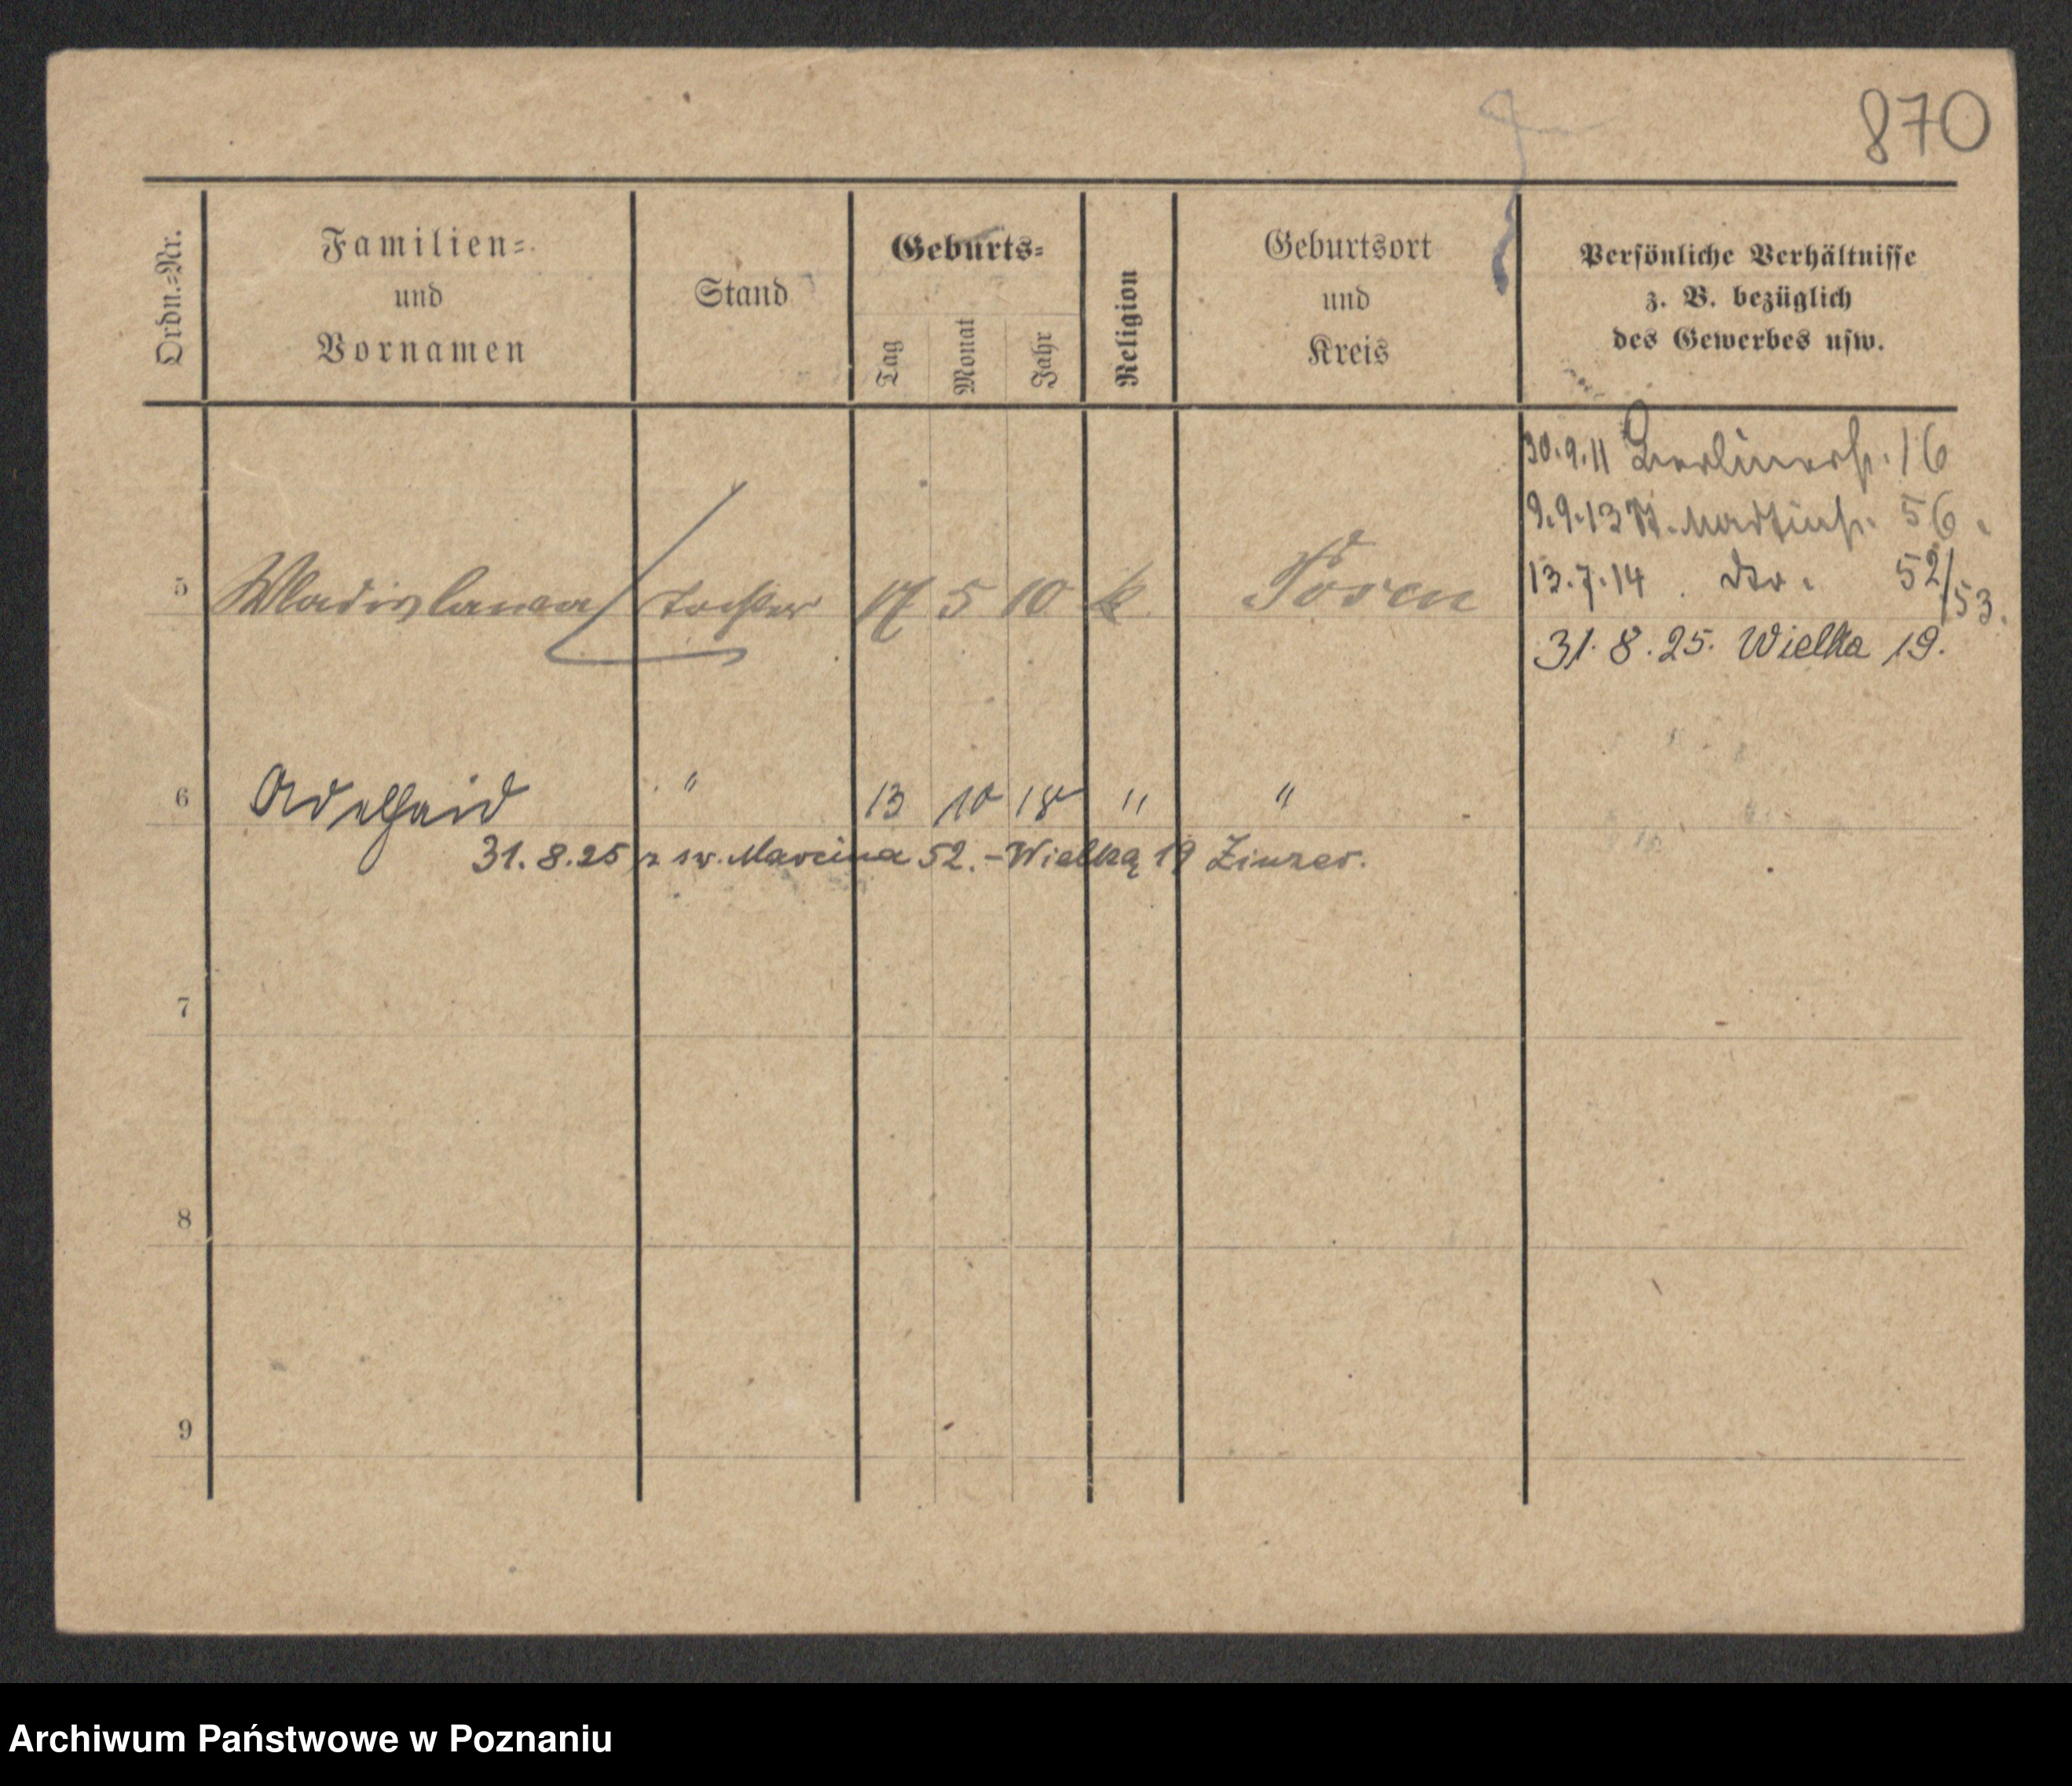 870
Ordn.=Nr.
Familien=
und
Vornamen
Stand
Geburts=
Tag
Monat
Jahr
Religion
Geburtsort
und
Kreis
Persönliche Verhältnisse
z. B. bezüglich
des Gewerbes usw.
30.9.11 Berlinerstr. 16
9.9.13 St. Martinstr. 56.
13.7.14 dto. 52/53.
5 Wladislawa Tochter 17 5 10 k. Posen
31.8.25. Wielka 19.
6 Adelheid " 13 10 18 " "
31.8.25 z św. Marcina 52. - Wielką 19
7
8
9
Archiwum Państwowe w Poznaniu